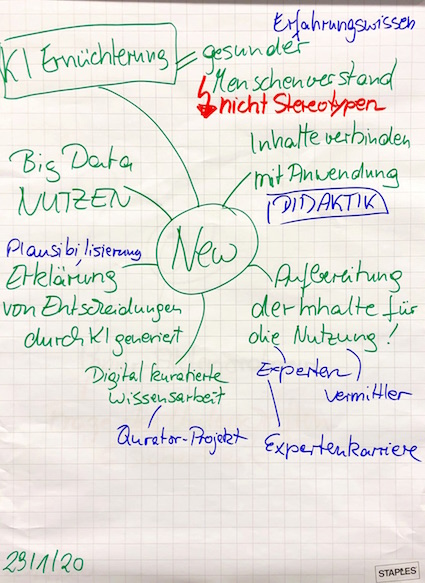 Erfahrungswissen
KI Ernüchterung
gesunder
Menschenverstand
nicht Stereotypen
Inhalte verbinden
mit Anwendung
DIDAKTIK
Big Data
NUTZEN
New
Plausibilisierung
Erklärung
von Entscheidungen
durch KI generiert
Aufbereitung
der Inhalte für
die Nutzung!
Experten
vermittler
Expertenkarriere
Digital kuratierte
Wissensarbeit
Qurator-Projekt
29/1/20
STAPLES